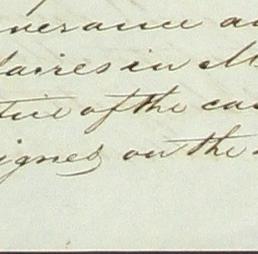 nerance a
laires in M
tice of the ca
igned on the